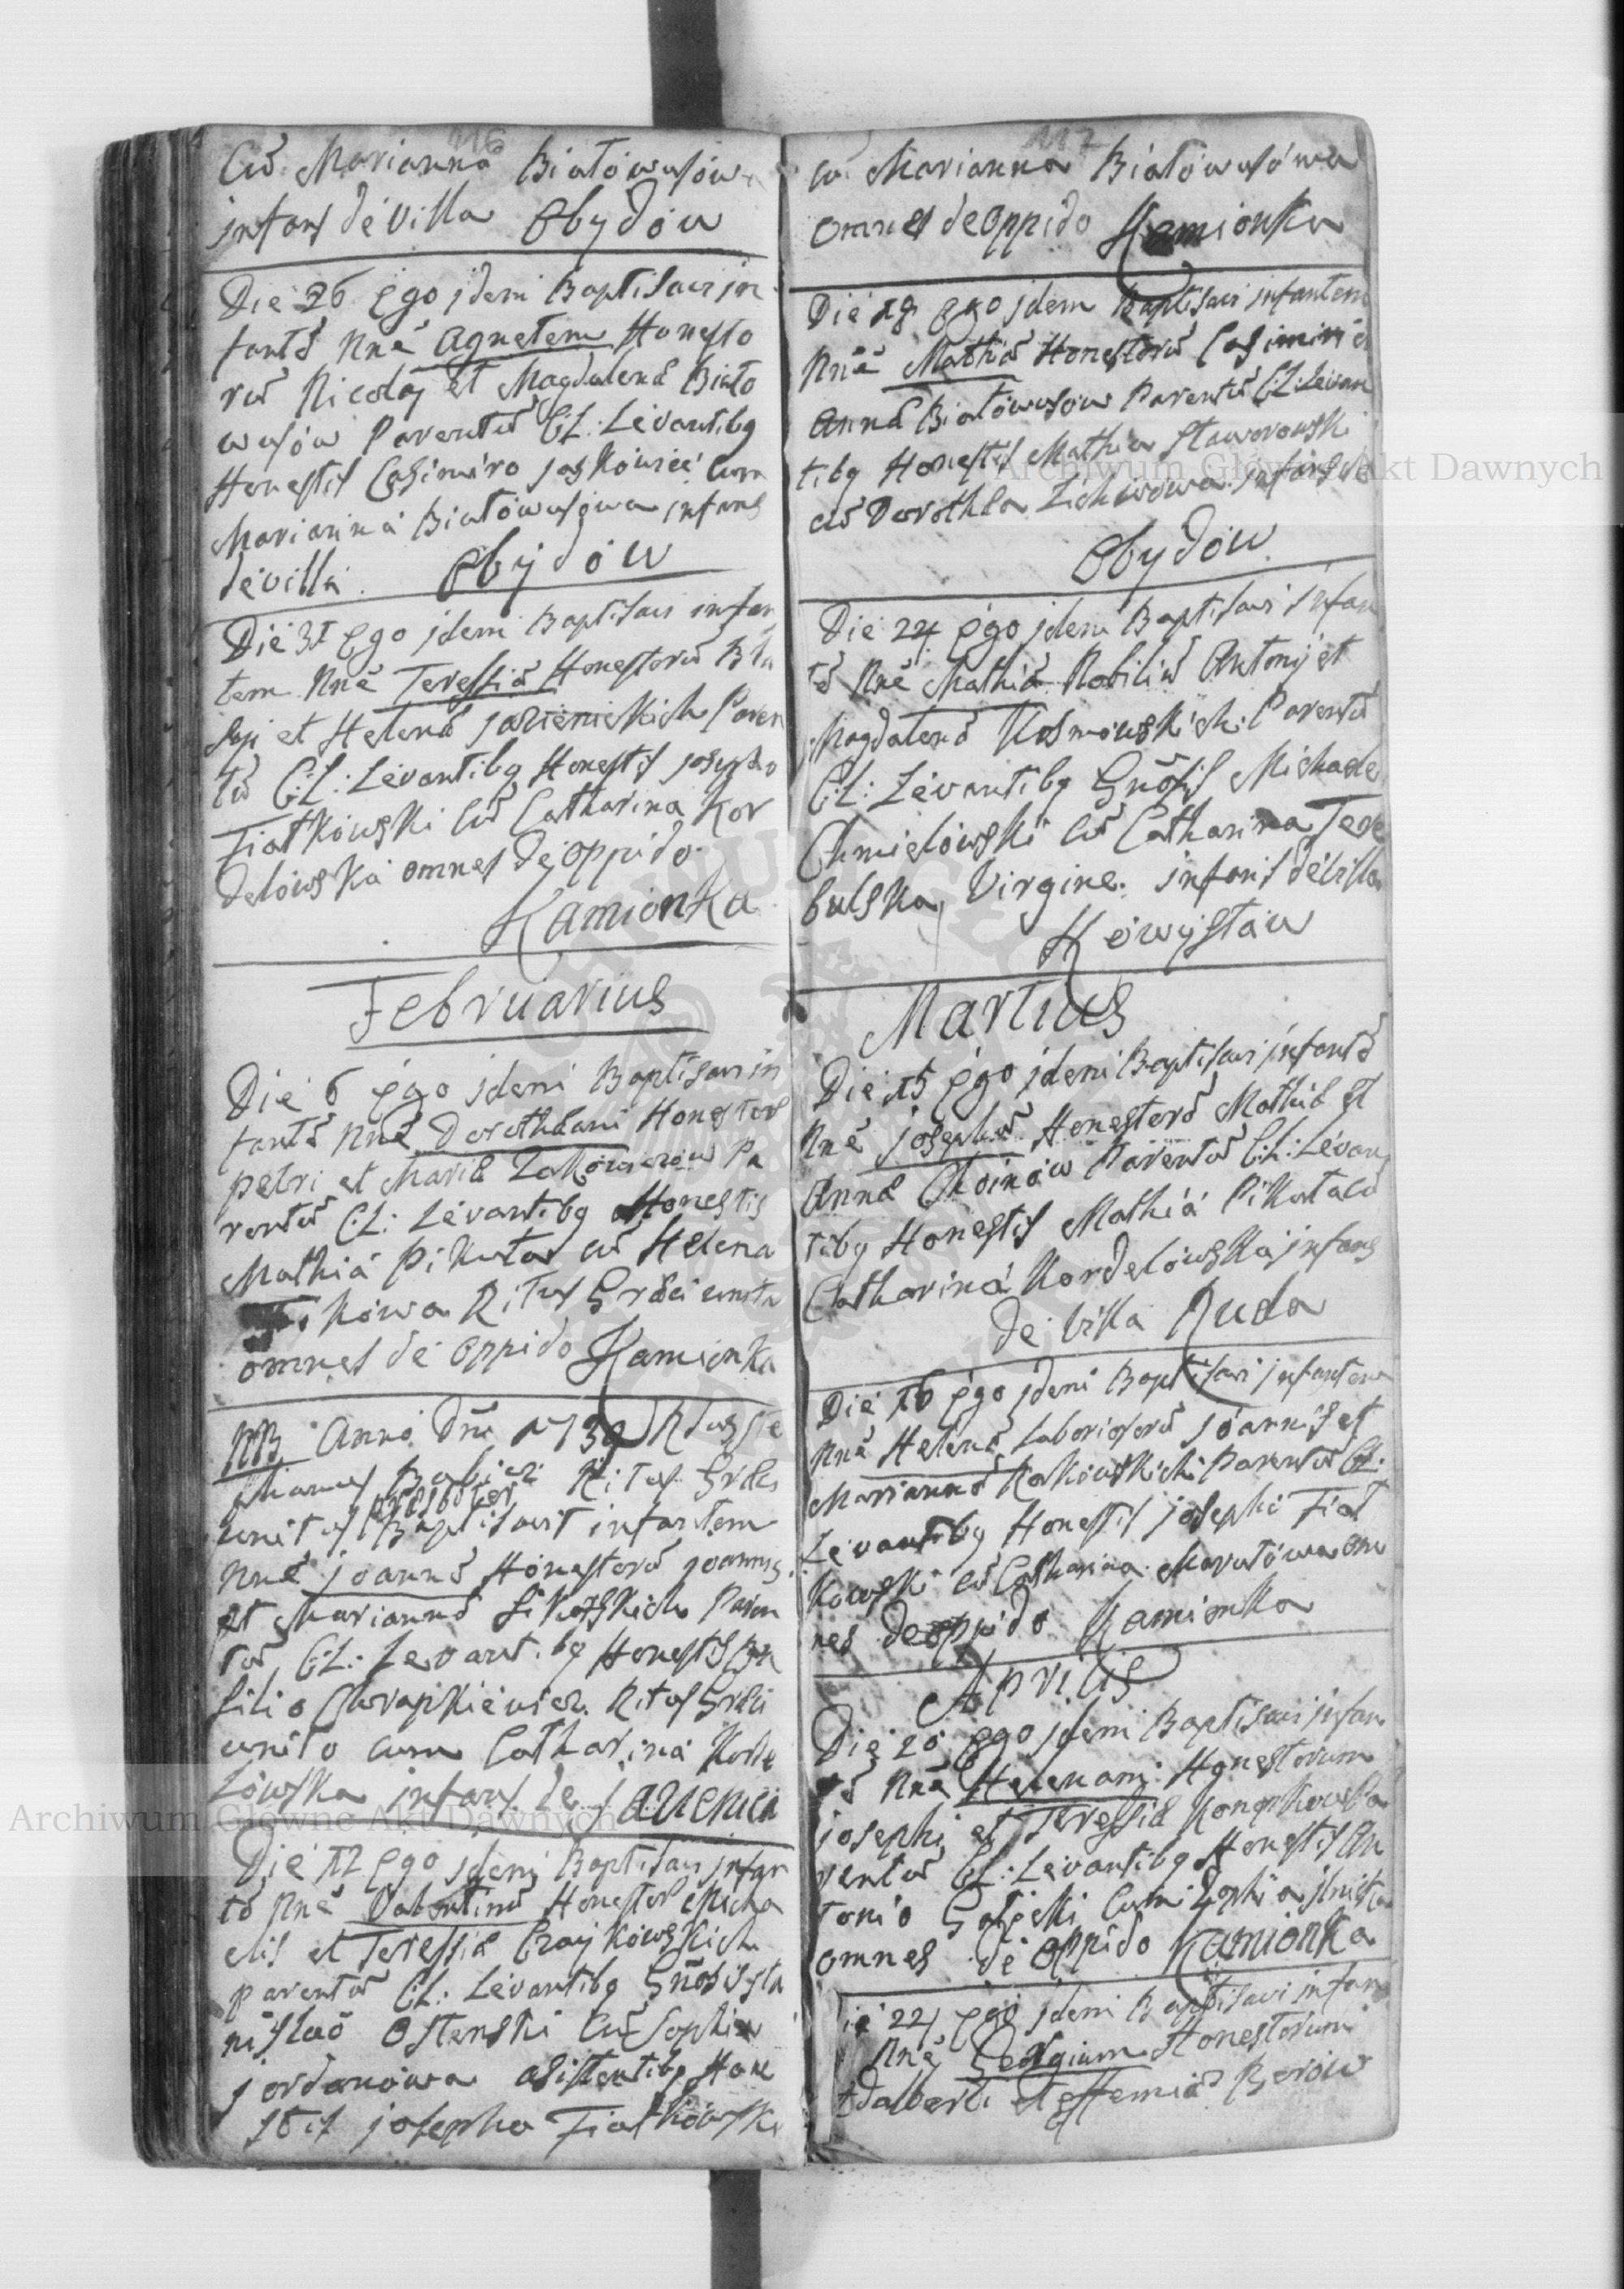 116
Cũ Marianna Białowąsowa
infans de Villa Obydów
Die 26 Ego idem Baptisavi in
fantẽ Nnẽ Agnetem Honesto
rũ Nicolaj et Magdalenæ Biało
wąsów Parentũ C:L: Levantibg
Honestis Casimiro Jaskowicz Cum
Marianna Białowąsowa infans
de villa Obydów
Die 31 Ego idem Baptisavi infan
tem Nnẽ Teressiã Honestorũ Bla
sij et Helenæ Jazienickich Paren
tũ C:L: Levantibg Honestis Josepho
Fiałkowski Cũ Catharina Kor
delowska omnes de oppido
Kamionka
Februarius
Die 6 Ego idem Baptisavi in
fantẽ Nnẽ Dorotheam Honestor
Petri et Mariæ Pa
rentũ C:L: Levantibg Honestis
Mathia Pikuła cũ Helena
kowa Ritus Græci unita
omnes de oppido Kamionka
NB Anno Dni 1739 R Ste
phanus Ritus Græci
unitus Præsbiter Baptisavit infantem
Nnẽ Joannẽ Honestorũ Joannis
et Mariannæ Sikorskich Paren
tũ C:L: Levantibg Honestis Ba
silio Ritus Græci
unito cum Catharina Korde
lowska infans de Jazienica
Die 12 Ego idem Baptisavi infan
tẽ Nnẽ Valentinũ Honestor Micha
elis et Teressiæ Czaykowskich
parentũ C:L: Levantibg Gnosis Sta
nislao Ostenski Cũ Sophia
Jordanowa asistentibg Hone
stis Josepho Fiałkowski
117
cũ Marianna Białowąsowa
omnes de oppido Kamionka
Die 18 Ego idem Baptisavi infantem
Nnẽ Mathiã Honestorũ Casimiri et
Annæ Białowąsow Parentũ C:L: Levan
tibg Honestis Mathia Staworowski
cũ Dorothea infans de
Obydów
Die 24 Ego idem Baptisavi infan
tẽ Nnẽ Mathiã Nobiliũ Antonij et
Magdalenæ Kosmowskich Parentũ
C:L: Levantibg Gnosis Michaele
Chmielowski cũ Catharina Tere
bulska Virgine infans de Villa
Martius
Die 15 Ego idem Baptisavi infantẽ
Nnẽ Josephũ Honestorũ Mathiæ et
Annæ Choinów Parentũ C:L: Levan
tibg Honestis Mathia Pikuła cũ
Catharina Kordelowska infans
de Villa Ruda
Die 16 Ego idem Baptisavi infantem
Nnẽ Helenã Laboriosorũ Joannis et
Mariannæ Rakowskich Parentũ C:L:
Levantibg Honestis Josepho Fiał
kowski cũ Catharina om
nes de oppido Kamionka
Aprilis
Die 20 Ego idem Baptisavi infan
tẽ Nnẽ Helenam Honestorum
Josephi et Teressiæ Pa
rentũ C:L: Levantibg Honestis An
tonio Cum Sophia
omnes de oppido Kamionka
ie 22 Ego idem Baptisavi infan
Nnẽ Georgium Honestorum
Adalberti
Archiwum Główne Akt Dawnych
Archiwum Główne Akt Dawnych